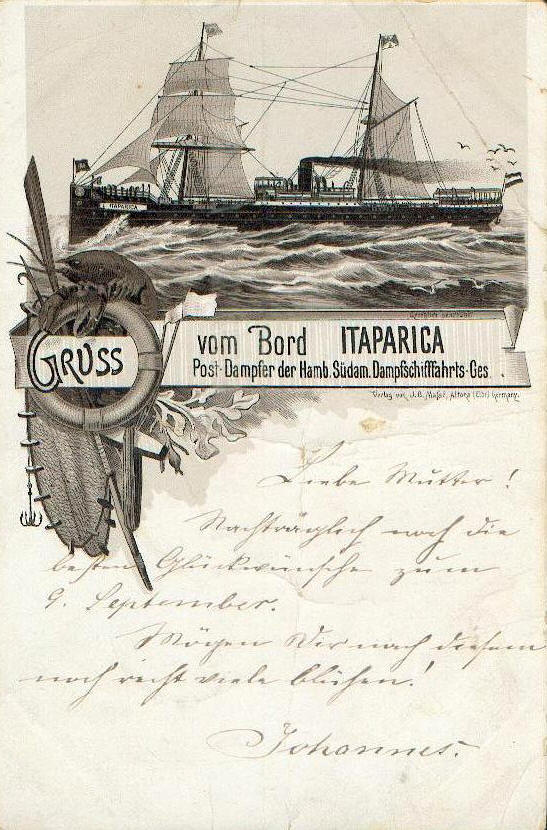 ITAPARICA
GRUSS
vom Bord ITAPARICA
Post-Dampfer der Hamb. Südam. Dampfschifffahrts-Ges.
Gesetzlich geschützt
Verlag von J. B. Altona (Elbe) Germany.
Liebe Mutter!
Nachträglich noch die
besten Glückwünsche zum
9. September.
Mögen Dir nach diesem
noch recht viele blühen!
Johannes.